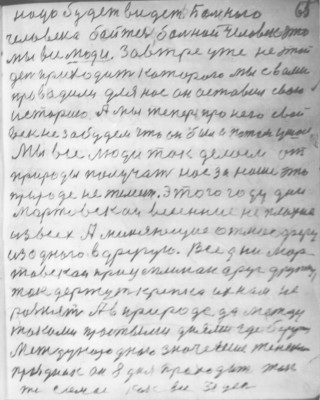 надо будет видет. Больного 68
человека бойтес больной человек это
мы все люди. Завтре уже не этот
ден приходит которого мы с вами
проводили для нас он оставил свою
историю. А мы теперь про него свой
век не забудем что он был
Мы все люди так делаем от
природы получат нас за наше это
природе не Этого году дни
мартовской весенние не плохие
из всех А меняющие от них другу
из одного в другую. Все дни мар
товская прицеплинан друг другу
так держут крепко их нам не
розняти А в природе да между
такими простыми днями где берут
Международное значение женский
праздник он 8 дня проходит так
же само как все